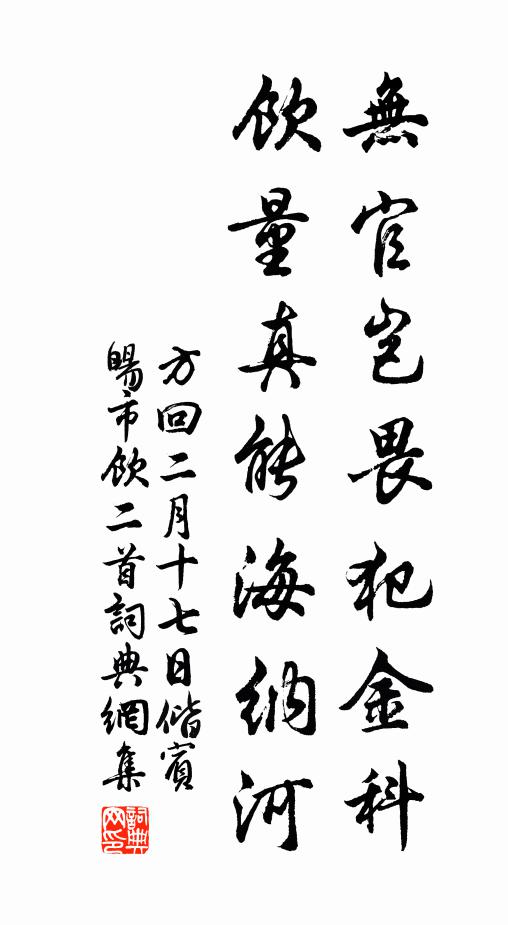 無官岂畏犯金科
飲量真能海納河
方回二月十七日偕賓
暘市飲二首詞典網集
詞典
网印